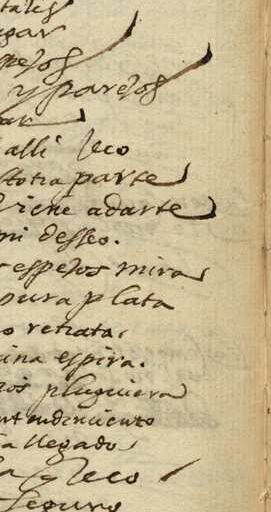 tales
gar
espejos
y parejos
ar
alli leo
otra parte
viene adarte
mi desseo.
espejos mira
pura plata
o retrata.
ina espira.
pluguiera
entendimiento
a llegado
leo
seguro